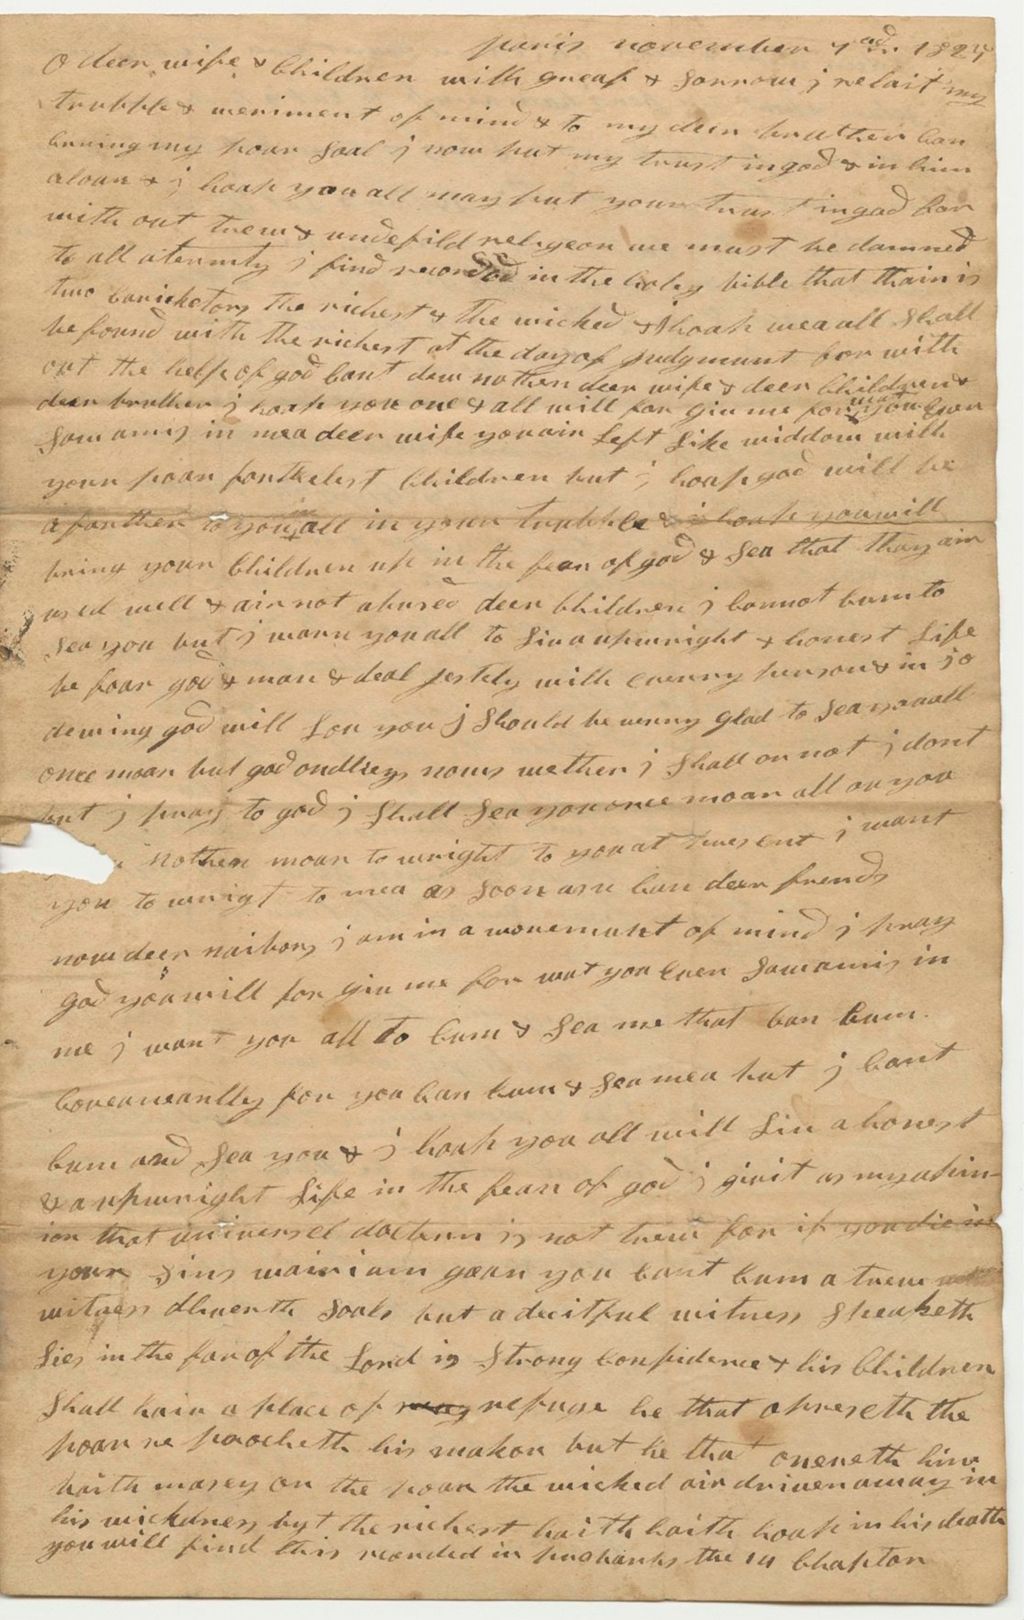 paris november 7 ad. 1824
O deer wife & Children with greaf & sorrow j relait my
trubble & weriment of mind & to my deer bruther Con
cerning my poar Soal j now put my trust in god & in him
aloan & j hoap you all may put your trust in god for
with out trew & undefild religeon we must be damned
to all aternity j find recorded in the holey bible that thair is
two Caricktors the richest & the wicked & j hoap wea all Shall
be found with the richest at the day of judgment for with
out the help of god Cant dew nothen deer wife & deer Children &
deer bruther j hoap you one & all will for giv me for wat you Even
Saw amis in mea deer wife you air Left Like widdow with
your poar fartherlest Children but j hoap god will be
a farther to you all in your trubble & j hoap you will
bring your Children up in the fear of god & Sea that thay air
used well & air not abused deer Children j Cannot Cum to
Sea you but j warn you all to Liv a upwright & honest Life
be foar god & man & deal jestely with everry person & in so
dewing god will Lov you j Should be verry glad to Sea you all
once moar but god ondley nows wether j Shall or not j dont
but j pray to god j Shall Sea you once moar all or you
nothen moar to wright to you at present j want
you to wright to mea as Soon as u Can deer frends
now deer naibors j am in a worement of mind j pray
god you will for giv me for wat you Even Saw amis in
me j want you all to Cum & Sea me that Can Cum.
Coveaneantley for you Can Cum & Sea mea but j Cant
Cum and Sea you & j hoap you all will Liv a honest
& a upwright Life in the fear of god j giv it as my apin-
ion that univarsel doctern is not trew for if you die in
your Sins wair i am goan you Cant Cum a trew
witness dliverth Soals but a deceitful witness Speaketh
Lies in the far of the Lord is Strong Confidence & his Children
Shall hair a place of refuge he that opreseth the
poar re proacheth his makor but he that oneneth him
haith marsy on the poar the wicked air driven away in
his wickdness but the richest haith haith hoap in his death
you will find this recorded in the 14 Chaptor